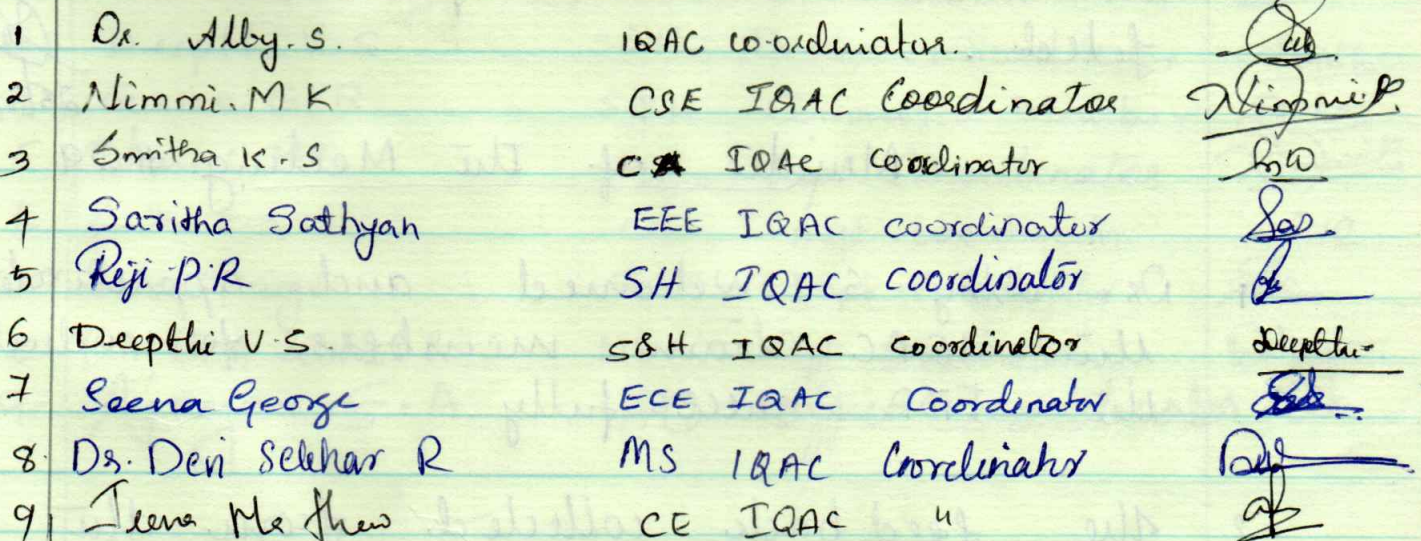 1 Dr. Alby. S. IQAC co-ordiniator.
2 Nimmi. M K CSE IQAC Coordinator Nimmi
3 Smitha K. S IQAC coordinator
4 Saritha Sathyan EEE IQAC coordinator
5 Reji P. R SH IQAC coordinator
6 Deepthi V. S. S&H IQAC coordinator Deepthi
7 Seena George ECE IQAC Coordinator
8. Dr. Devi Sekhar R MS IQAC Coordinator
9 Mathew CE IQAC "